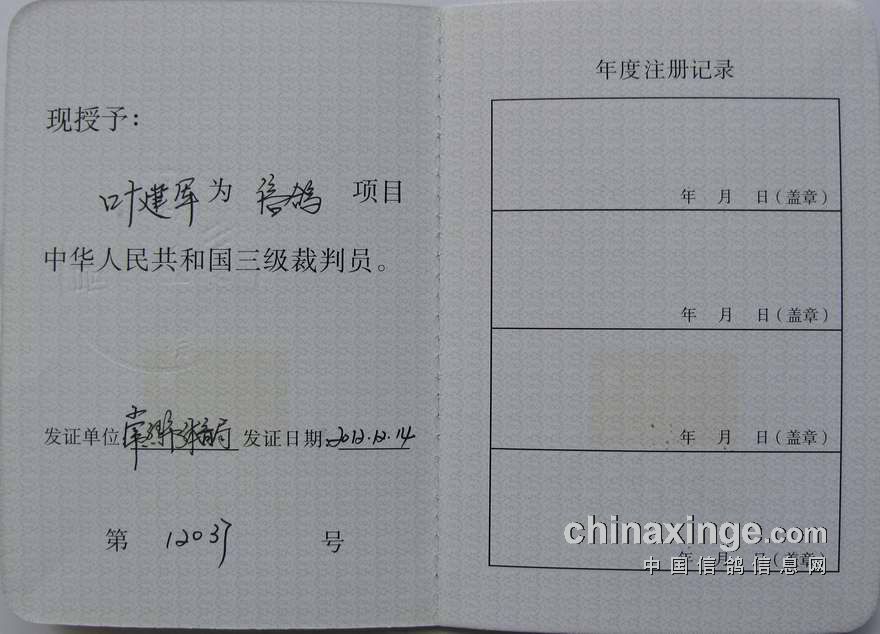 现授予：
叶建军为 信鸽 项目
中华人民共和国三级裁判员。
发证单位 发证日期 2012.12.14
第 12037 号
年度注册记录
年 月 日（盖章）
年 月 日（盖章）
年 月 日（盖章）
年 月 日（盖章）
chinaxinge.com
中国信鸽信息网